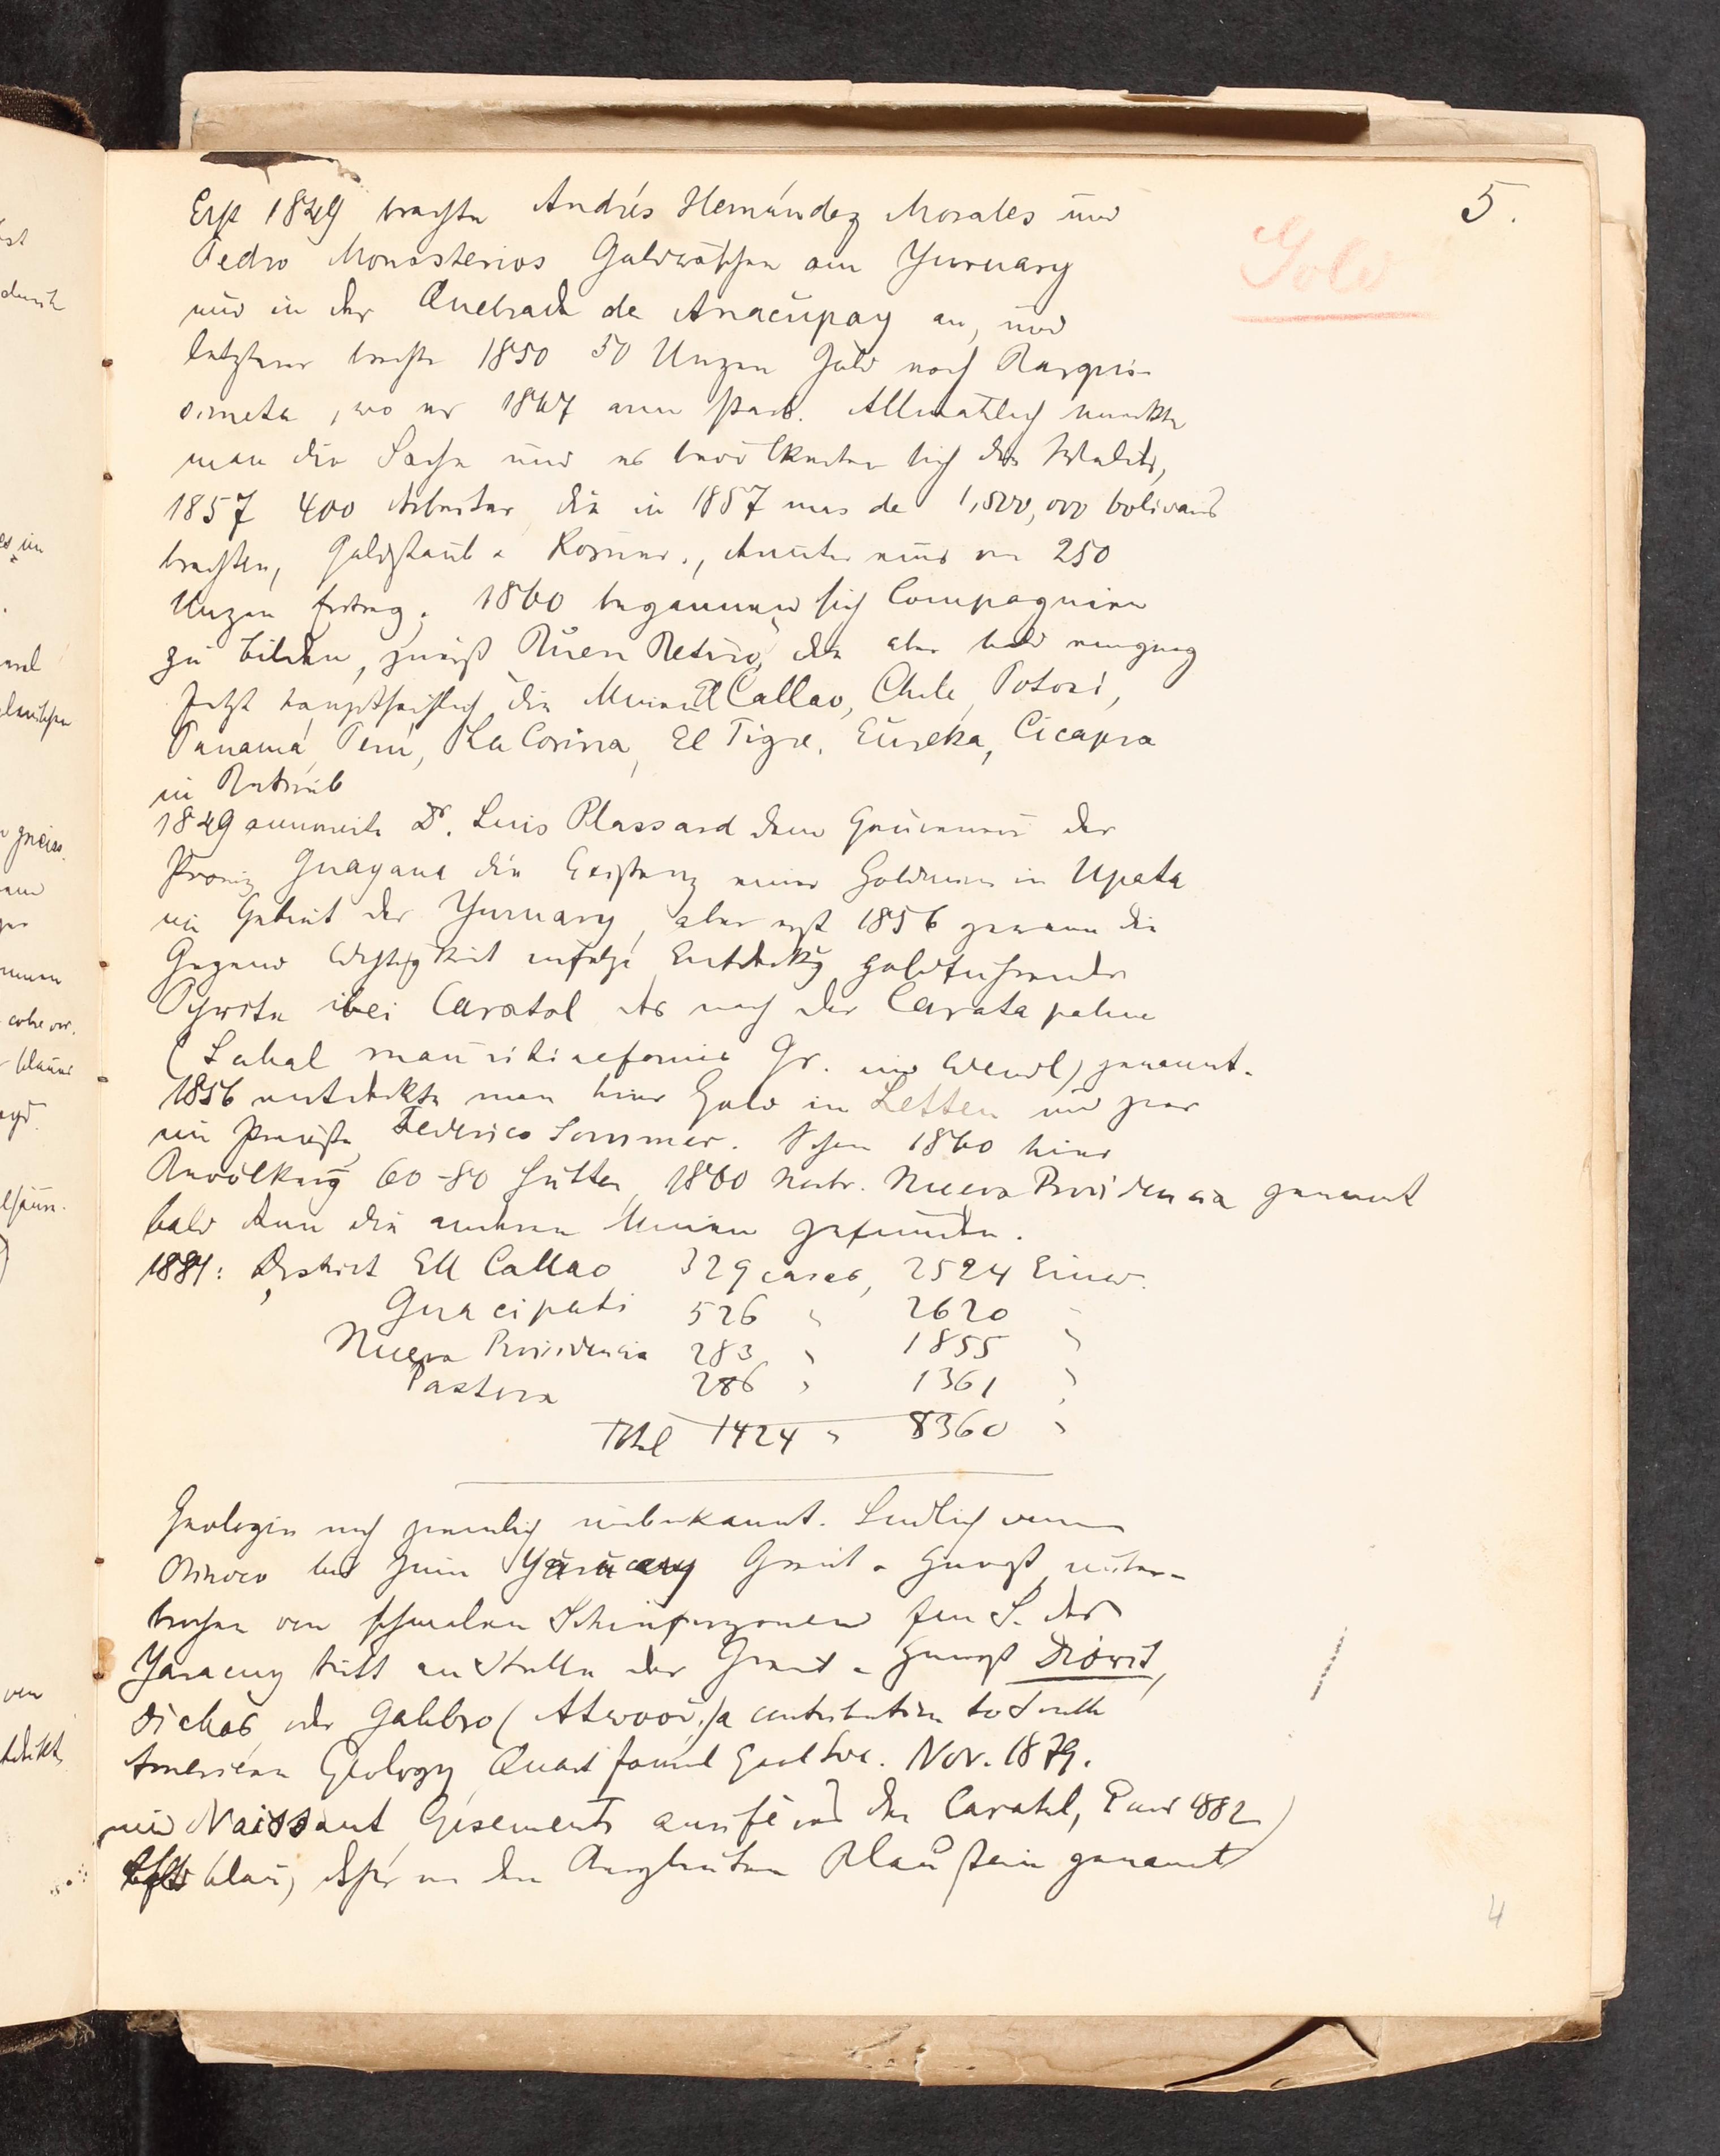 5.
Gold
Erst 1849 brachte Andrés Hernández Morales und
Pedro Monasterios Goldwäschen am Yuruary
und in der Quebrada de Anacupay an, und
letzterer brachte 1850 50 Unzen Gold nach Barquisi-
simeto, wo er 1867 arm starb. Allmählich merkte
man die Sache und es bevölkerten sich die Wälder,
1857 400 Arbeiter, die in 1857 mas de 1,500,000 bolivares
brachten, Goldstaub & Körner, darunter eins von 250
Unzen Ertrag. 1860 begannen sich Compagnien
zu bilden, zuerst Buen Retiro, die aber bald einging
Jetzt hauptsächlich die Minen El Callao, Chile, Potosí,
Panamá, Perú, La Corina, El Tigre, Eureka, Cicapra
in Betrieb
1849 annoncirte Dr. Luis Plassard dem Gouverneur der
Provinz Guayana die Existenz einer Goldmine in Upata
im Gebiet des Yuruary, aber erst 1856 gewann die
Gegend Wichtigkeit infolge Entdeckg goldführender
Pyrite bei Caratal das nach der Carata palme
(Sabal mauritiaeformis Gr. und Wendl) genannt.
1856 entdeckte man hier Gold in Letten und zwar
ein Preusse, Federico Sommer. Schon 1860 hier
Bevölkerung 60-80 Hütten, 1860 Nueva Providencia genannt
bald dann die anderen Minen gefunden.
1881: District El Callao 329 casas, 2524 Einw.
Guacipati 526 " 2620 "
Nueva Providencia 283 " 1855 "
Pastora 286 " 1361 "
Total 1424 " 8360 "
Geologie noch ziemlich unbekannt. Südlich vom
Orinoco bis zum Yuruary Granit & Gneiß, unter-
brochen von schmalen Schieferzonen. Im S. des
Yuruary tritt an Stelle der Granit & Gneiß Diorit,
Diabas, oder Gabbro (Attwood, a contribution to South
American Geology Quart Journal Geol Soc. Nov. 1879.
und Naissant Gisements aurifères de Caratal, Paris 1882)
blau, daher von den Bergleuten Blaustein genannt
4